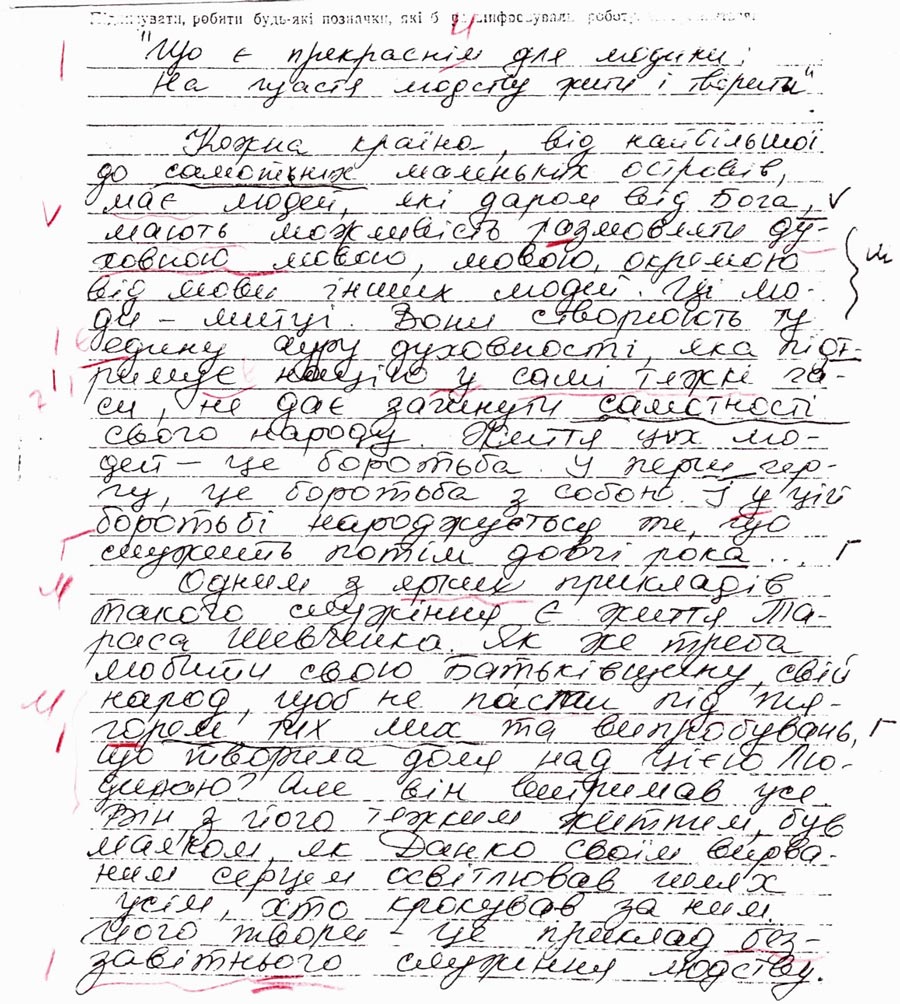 Підписувати, робити будь-які позначки, які б розшифровували роботу,
"Що є прекраснім для людини:
На щастя людству жити і творити"
Кожна країна, від найбільшої
до самотьніх маленьких островів,
має людей, які даром від Бога,
мають можливість размовляти ду-
ховною мовою, мовою, окремою
від мови інших людей. Ці лю-
ди – митці. Вони створюють ту
едину ауру духовності, яка підт-
римує націю у самі тяжкі ча-
си, не дає загинути самотності
свого народу. Життя цих лю-
дей – це боротьба. У перш чер-
гу, це боротьба з собою. І у цій
боротьбі народжується те, що
служить потім довгі рока...
Одним з ярких прикладів
такого служіння є життя Та-
раса Шевченка. Як же треба
любити свою Батьківщину, свій
народ, щоб не пасти під тя-
горем тих лих та випробувань,
що творила доля над цією Лю-
диною? Але він витримав усе
Він з його тяжким життям, був
маяком, як Данко своїм вирва-
ним серцем освітлював шлях
усім, хто крокував за ним.
Його твори – це приклад без-
завітнього служіння людству.